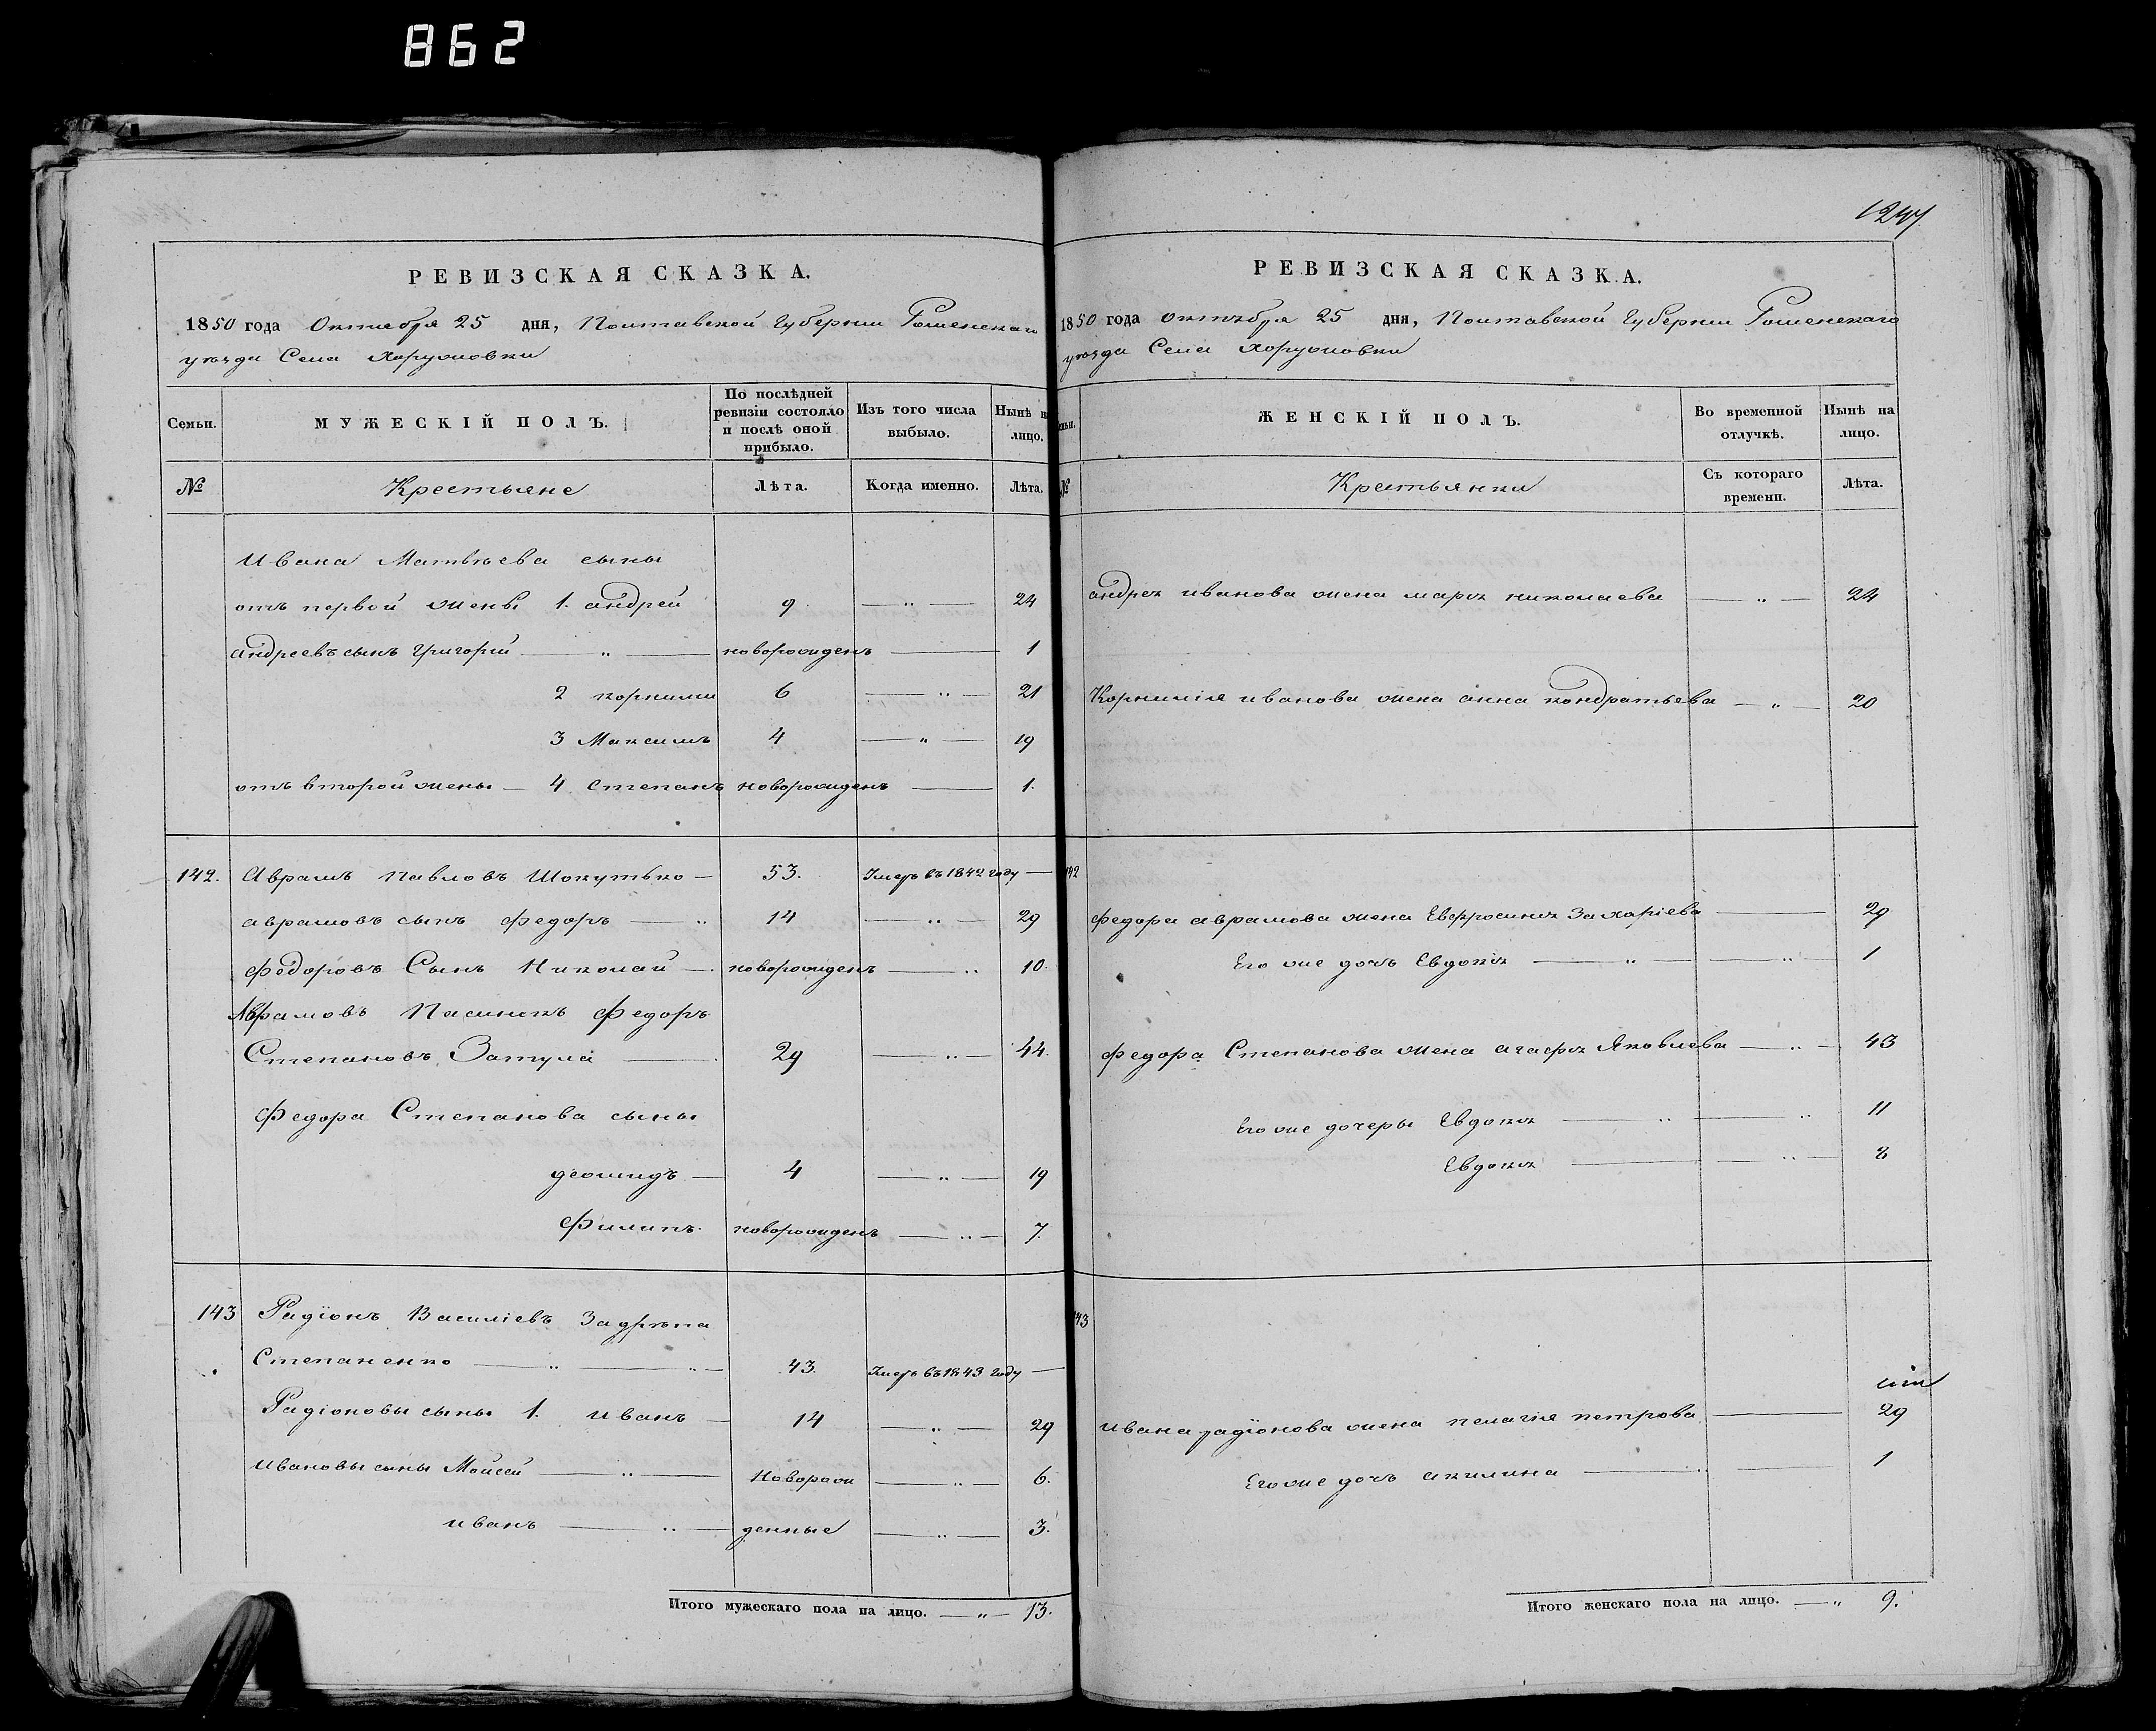 862
РЕВИЗСКАЯ СКАЗКА.
1850 года Октября 25 дня, Полтавской Губернии Роменскаго
уезда Села Хоружовки
Семьи. МУЖЕСКІЙ ПОЛЪ. По послѣдней ревизіи состояло и послѣ оной прибыло. Изъ того числа выбыло. Нынѣ на лицо.
№ Крестьяне Лѣта. Когда именно. Лѣта.
Ивана Матвѣева сыны
отъ первой жены 1. андрей 9. — „ — 24
андреевъ сынъ григорій — „ — новорожденъ — 1
2 корнилий 6 — „ — 21
3 Максимъ 4 — „ — 19
отъ второй жены — 4 степанъ новорожденъ — 1.
142. Аврамъ Павловъ Шокутько — 53. Умеръ въ 1842 году —
аврамовъ сынъ федоръ — „ 14 — „ — 29
федоровъ Сынъ Николай — . новорожденъ — „ 10.
Аврамовъ Пасинокъ федоръ
Степановъ Затула — . 29 — „ — 44.
федора Степанова сыны
деомидъ — 4 — „ — 19
филипъ. новорожденъ — „ — 7.
143 Радіонъ Василіевъ Задрѣпа
Степаненко — „ — „ — 43. Умеръ въ 1843 году —
Радіоновы сыны 1. иванъ — 14 — „ — 29
ивановы сыны Моисей — „ — Новорож — „ — 6.
иванъ — „ — денные — „ — 3.
Итого мужескаго пола на лицо. — „ — 13.
1247
РЕВИЗСКАЯ СКАЗКА.
1850 года октября 25 дня, Полтавской Губернии Роменскаго
уезда Села хоружовки
ЖЕНСКІЙ ПОЛЪ. Во временной отлучкѣ. Нынѣ на лицо.
№ Крестьянки Съ котораго времени. Лѣта.
андрея иванова жена марья николаева — „ — 24
Корнилія иванова жена анна кондратьева — „ — 20
142
федора аврамова жена Евфросинія Захаріева — 29
Его же дочь Евдокія — „ — „ — 1
федора Степанова жена агафія Яковлева — „ — 43
Его же дочеры Евдокія — „ — „ 11
Евдокія — „ — 8
143
ивана радіонова жена пелагія петрова — 29
Его же дочь акилина — „ — 1
Итого женскаго пола на лицо. — „ 9.